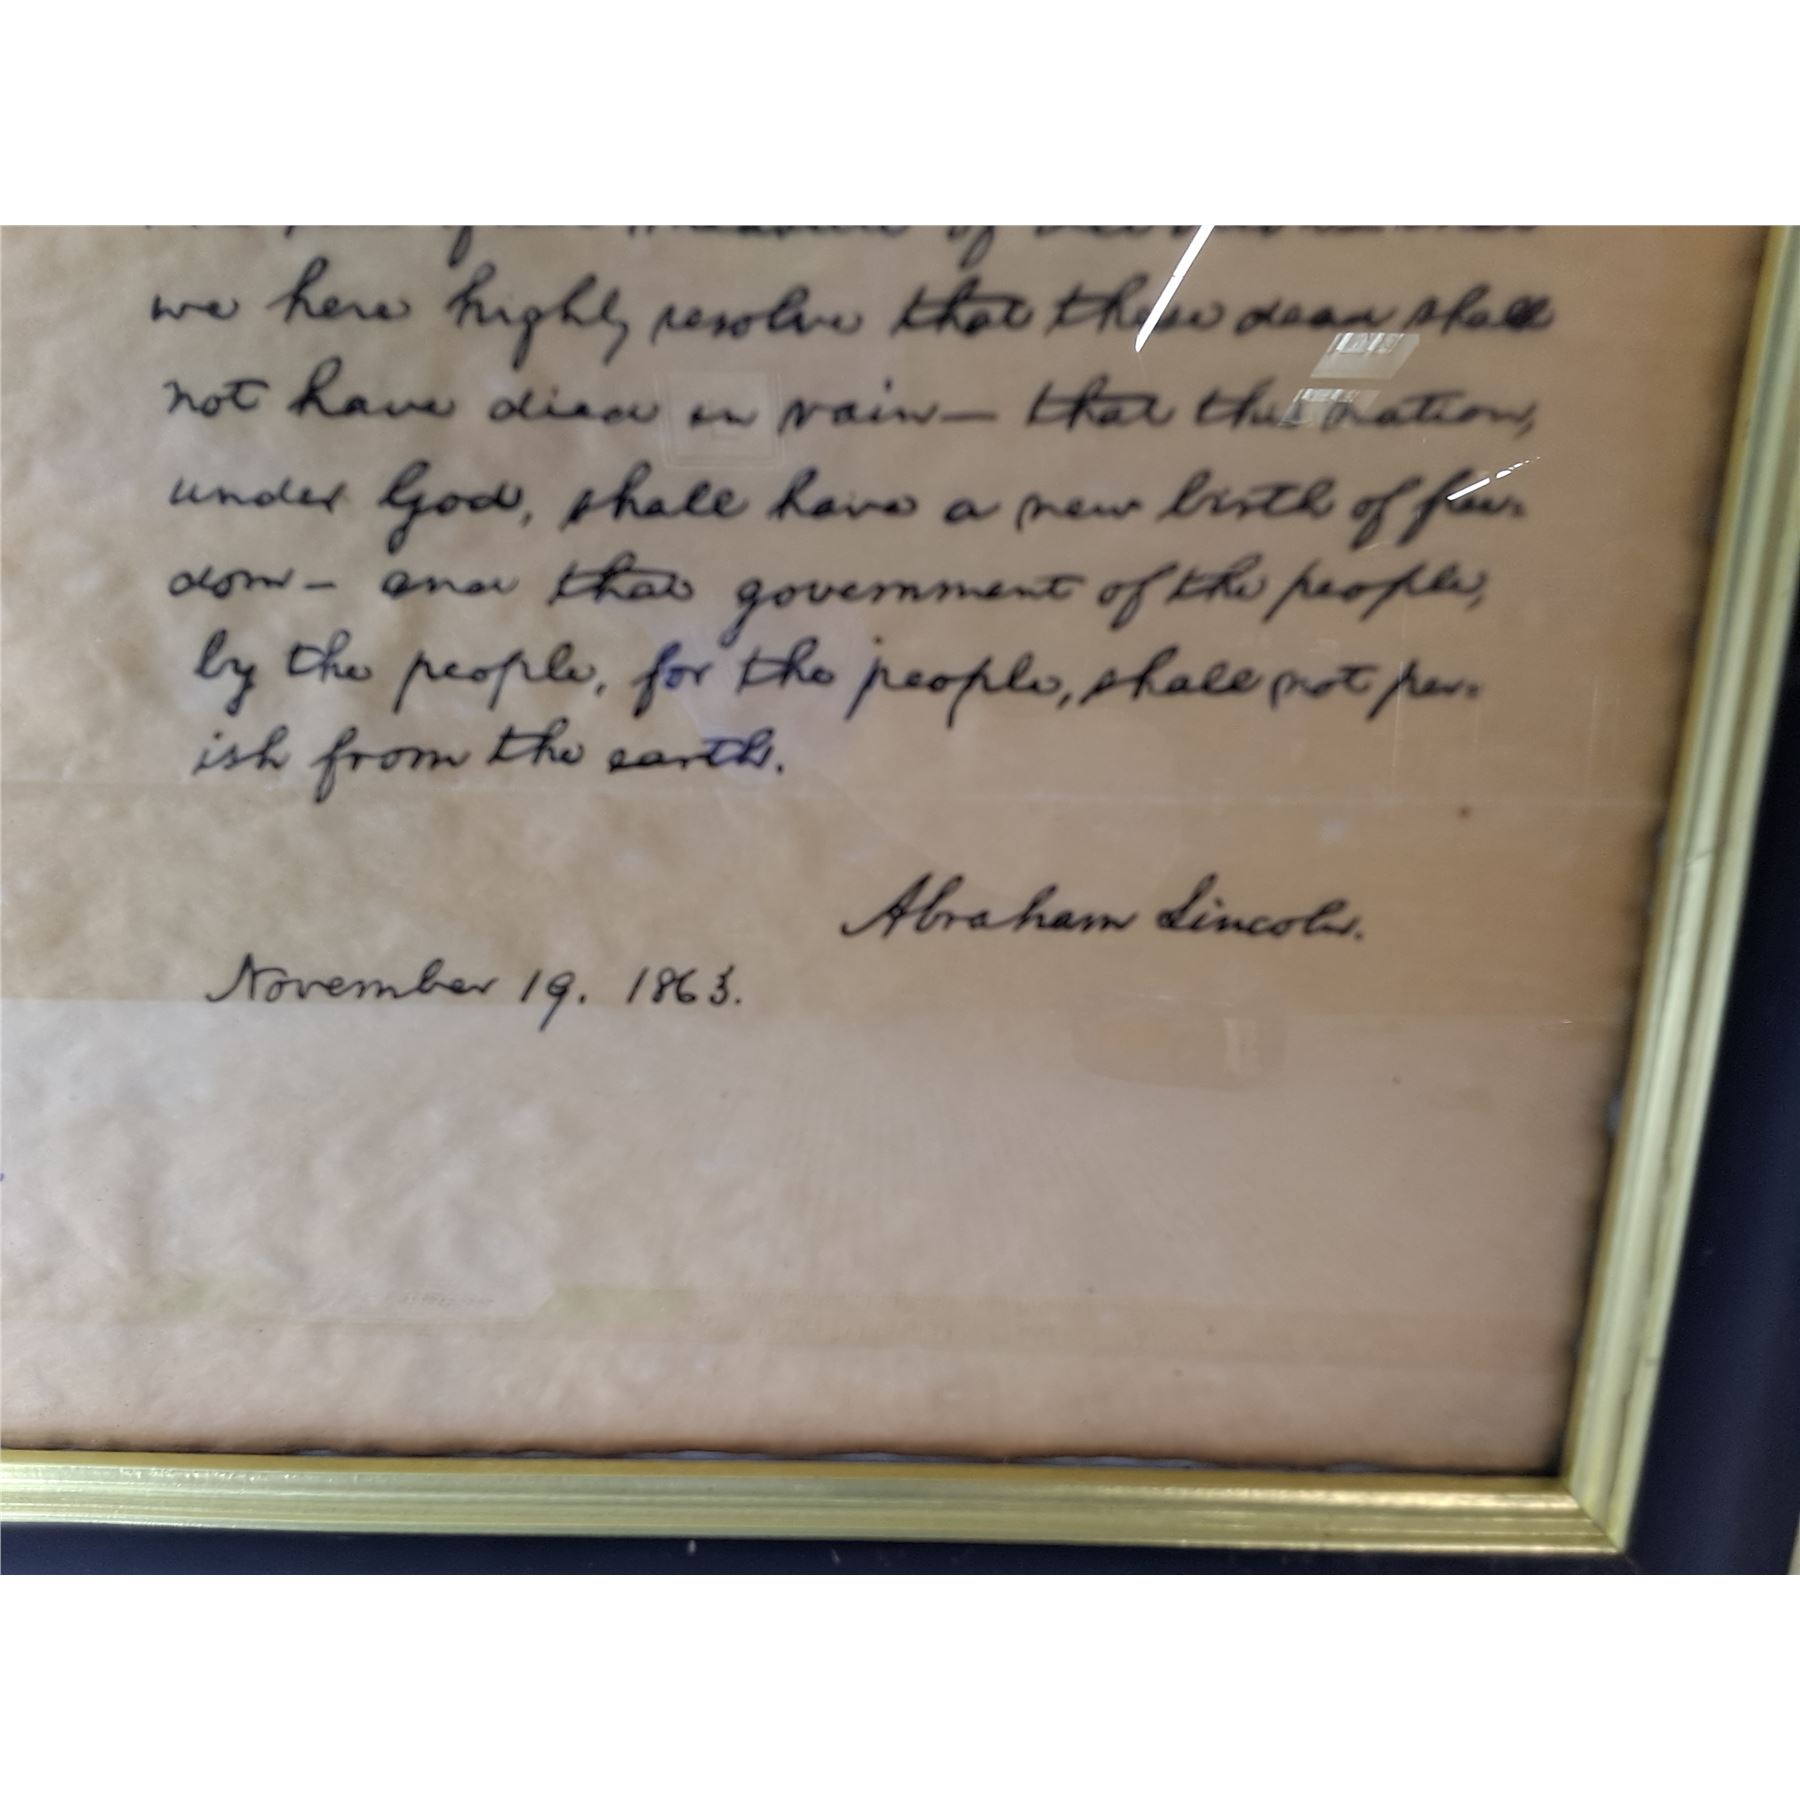 measure of
we here highly resolve that these dead shall
not have died in vain— that this nation,
under God, shall have a new birth of free=
dom— and that government of the people,
by the people, for the people, shall not per=
ish from the earth.
Abraham Lincoln.
November 19. 1863.